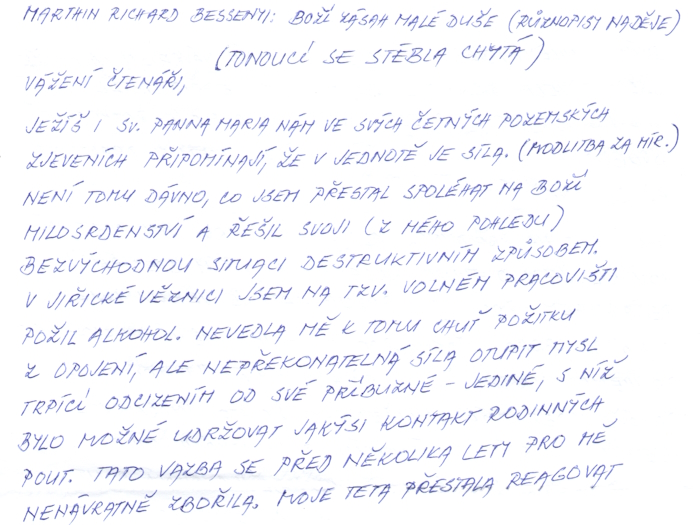 MARTHIN RICHARD BESSENYI: BOŽÍ ZÁSAH MALÉ DUŠE (RŮZNOPISY NADĚJE)
(TONOUCÍ SE STÉBLA CHYTÁ)
VÁŽENÍ ČTENÁŘI,
JEŽÍŠ I SV. PANNA MARIA NÁM VE SVÝCH ČETNÝCH POZEMSKÝCH
ZJEVENÍCH PŘIPOMÍNAJÍ, ŽE V JEDNOTĚ JE SÍLA. (MODLITBA ZA MÍR.)
NENÍ TOMU DÁVNO, CO JSEM PŘESTAL SPOLÉHAT NA BOŽÍ
MILOSRDENSTVÍ A ŘEŠIL SVOJI (Z MÉHO POHLEDU)
BEZVÝCHODNOU SITUACI DESTRUKTIVNÍM ZPŮSOBEM.
V JIŘICKÉ VĚZNICI JSEM NA TZV. VOLNÉM PRACOVIŠTI
POŽIL ALKOHOL. NEVEDLA MĚ K TOMU CHUŤ POŽITKU
Z OPOJENÍ, ALE NEPŘEKONATELNÁ SÍLA OTUPIT MYSL
TRPÍCÍ ODCIZENÍM OD SVÉ PŘÍBUZNÉ - JEDINÉ, S NÍŽ
BYLO MOŽNÉ UDRŽOVAT JAKÝSI KONTAKT RODINNÝCH
POUT. TATO VAZBA SE PŘED NĚKOLIKA LETY PRO MĚ
NENÁVRATNĚ ZBOŘILA. MOJE TETA PŘESTALA REAGOVAT